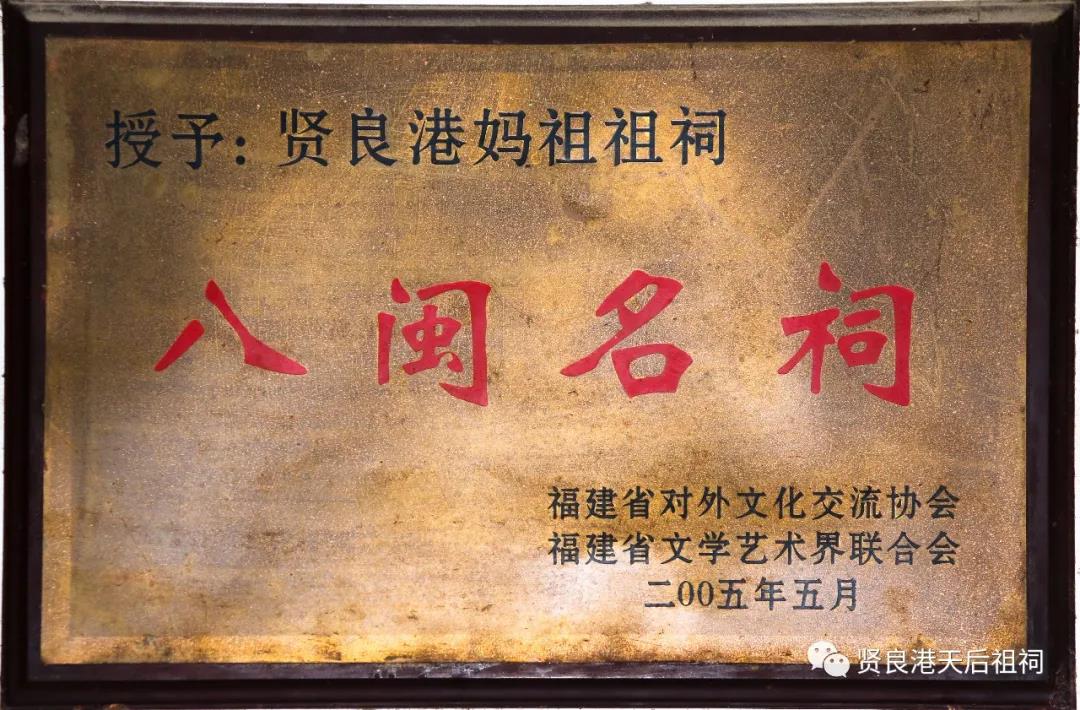 授予：贤良港妈祖祖祠
八闽名祠
福建省对外文化交流协会
福建省文学艺术界联合会
二00五年五月
贤良港天后祖祠